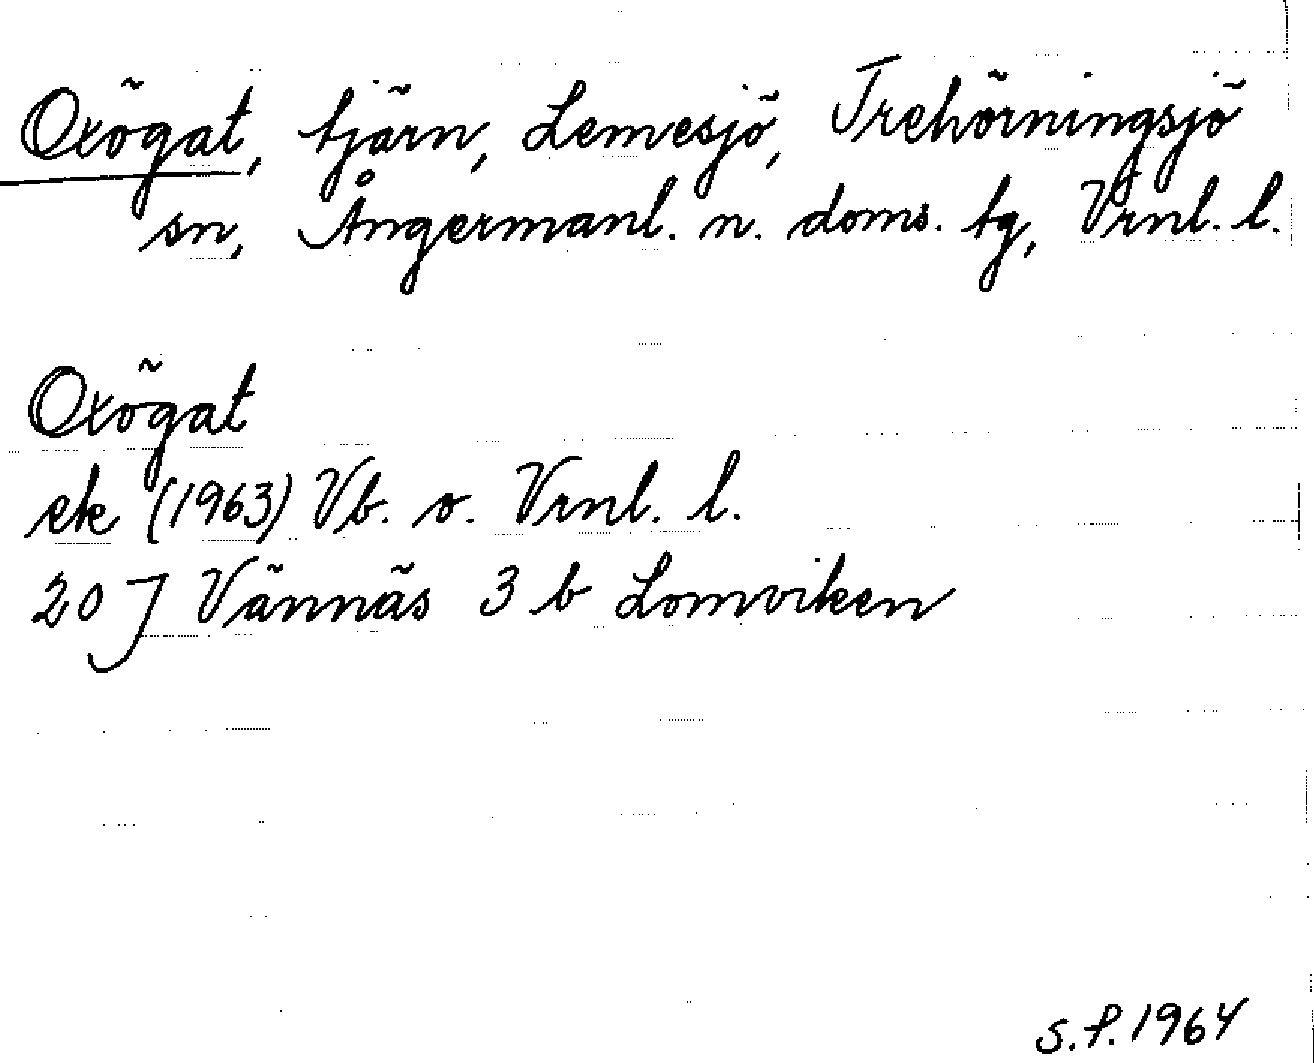 Oxögat, tjärn, Lemesjö, Trehörningsjö
sn, Ångermanl. n. doms. tg, Vrnl. l.
Oxögat
ek (1963) Vb. o. Vrnl. l.
20 J Vännäs 3 b Lomviken
S.P. 1964